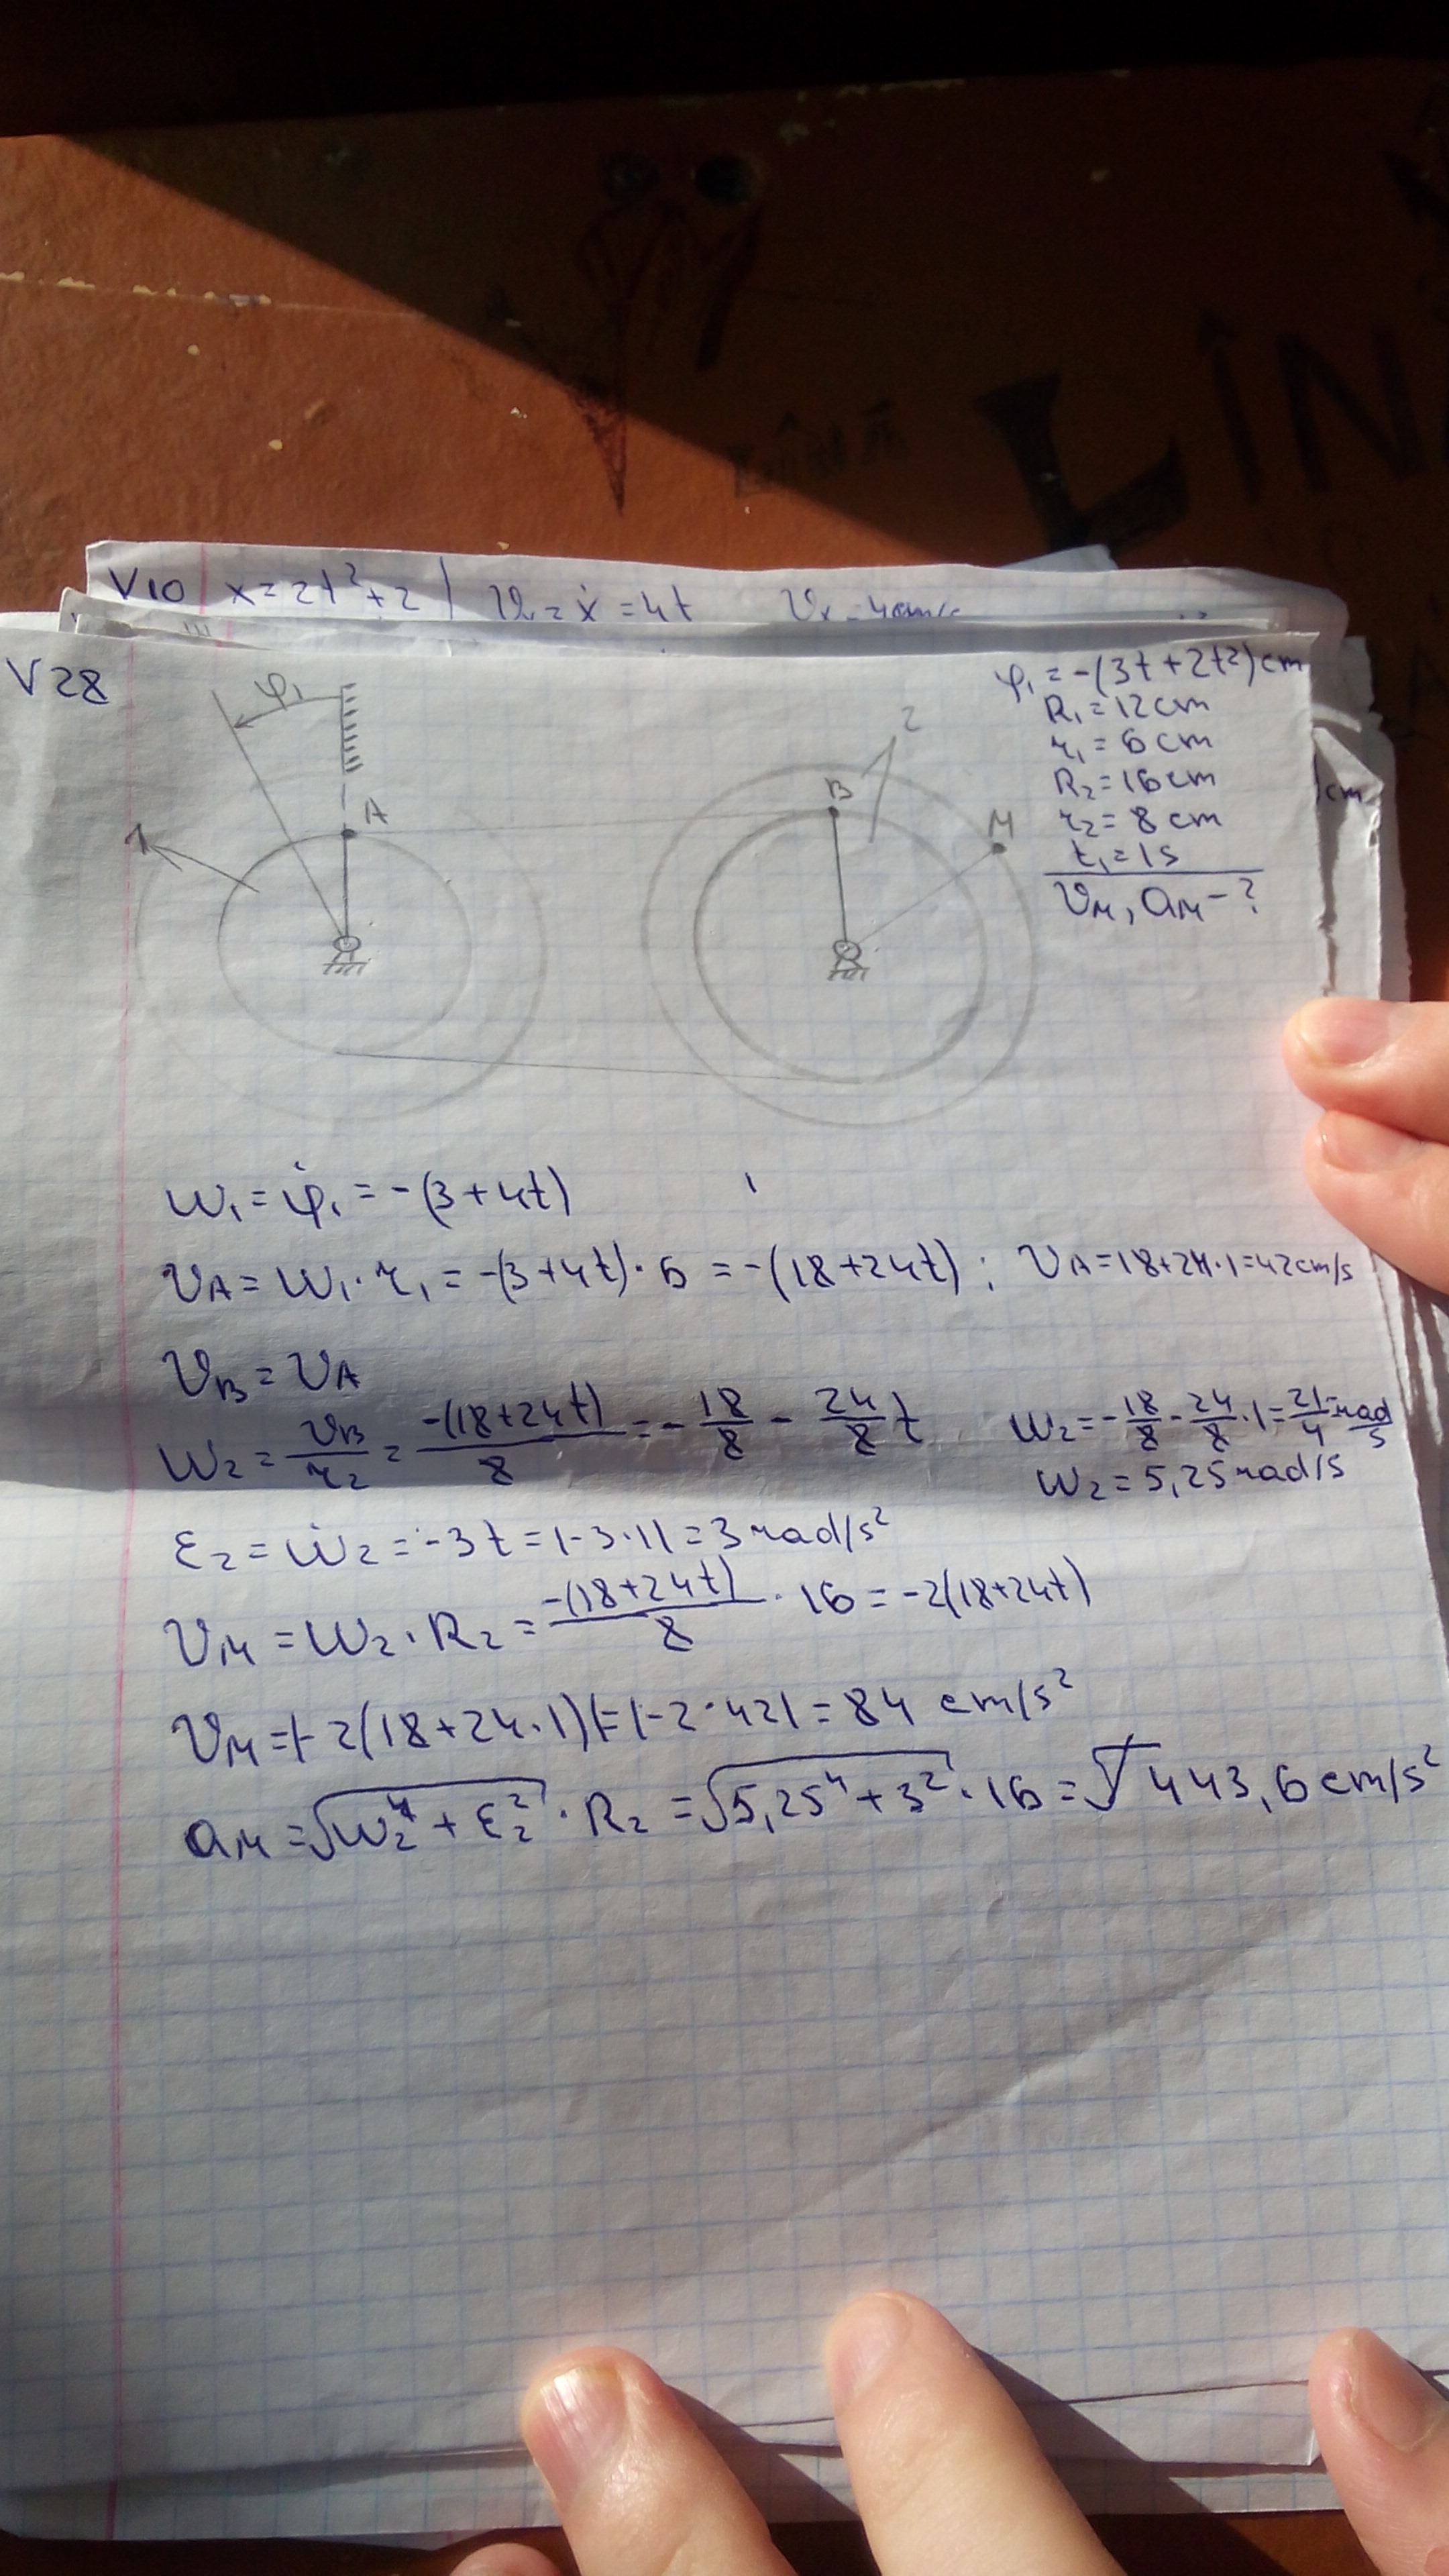 LIN
V10 x=2t²+2 | Vx=ẋ=4t Vx=4cm/s
V28
φ₁
A
1
B
2
M
φ₁=-(3t+2t²)cm
R₁=12cm
r₁=6cm
R₂=16cm
r₂=8cm
t₁=1s
VM, aM-?
cm
ω₁=φ̇₁=-(3+4t)
VA=ω₁·r₁=-(3+4t)·6=-(18+24t); VA=18+24·1=42cm/s
VB=VA
ω₂=VB/r₂=-(18+24t)/8=-18/8-24/8t ω₂=-18/8-24/8·1=21/4 rad/s
ω₂=5,25rad/s
ε₂=ω̇₂=-3t=|-3·1|=3rad/s²
VM=ω₂·R₂=-(18+24t)/8·16=-2(18+24t)
VM=|-2(18+24·1)|=|-2·42|=84 cm/s²
aM=√(ω₂⁴+ε₂²)·R₂=√(5,25⁴+3²)·16=√443,6cm/s²